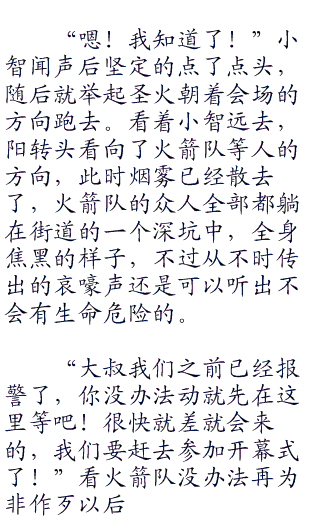 “嗯！我知道了！”小
智闻声后坚定的点了点头，
随后就举起圣火朝着会场的
方向跑去。看着小智远去，
阳转头看向了火箭队等人的
方向，此时烟雾已经散去
了，火箭队的众人全部都躺
在街道的一个深坑中，全身
焦黑的样子，不过从不时传
出的哀嚎声还是可以听出不
会有生命危险的。
“大叔我们之前已经报
警了，你没办法动就先在这
里等吧！很快就差就会来
的，我们要赶去参加开幕式
了！”看火箭队没办法再为
非作歹以后